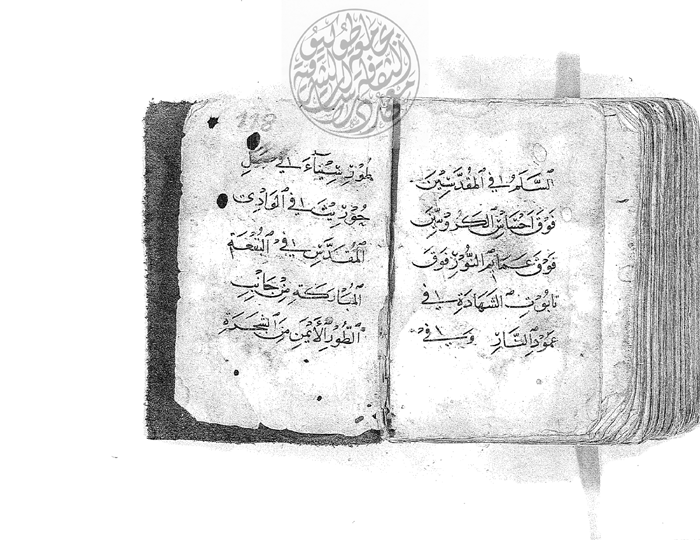 السَّلَمُ فِي المُقَدَّسِينَ
فَوْقَ اَحْسَاسِ الكَرُوبِينَ
فَوْقَ غَمَائِمِ النُّورِ فَوْقَ
تَابُوتِ الشَّهَادَةِ فِي
عَمُودِ النَّارِ وَفِي
118
طُورِ سِينَاءَ فِي جَبَلِ
حُورِيثَ فِي الوَادِي
المُقَدَّسِ فِي البُقْعَةِ
المُبَارَكَةِ مِنْ جَانِبِ
الطُّورِ الأَيْمَنِ مِنَ الشَّجَرَةِ